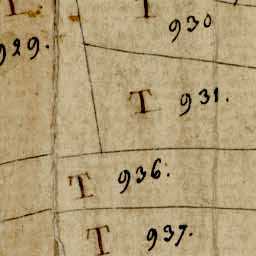 T 930
929.
T 931.
T 936.
T 937.